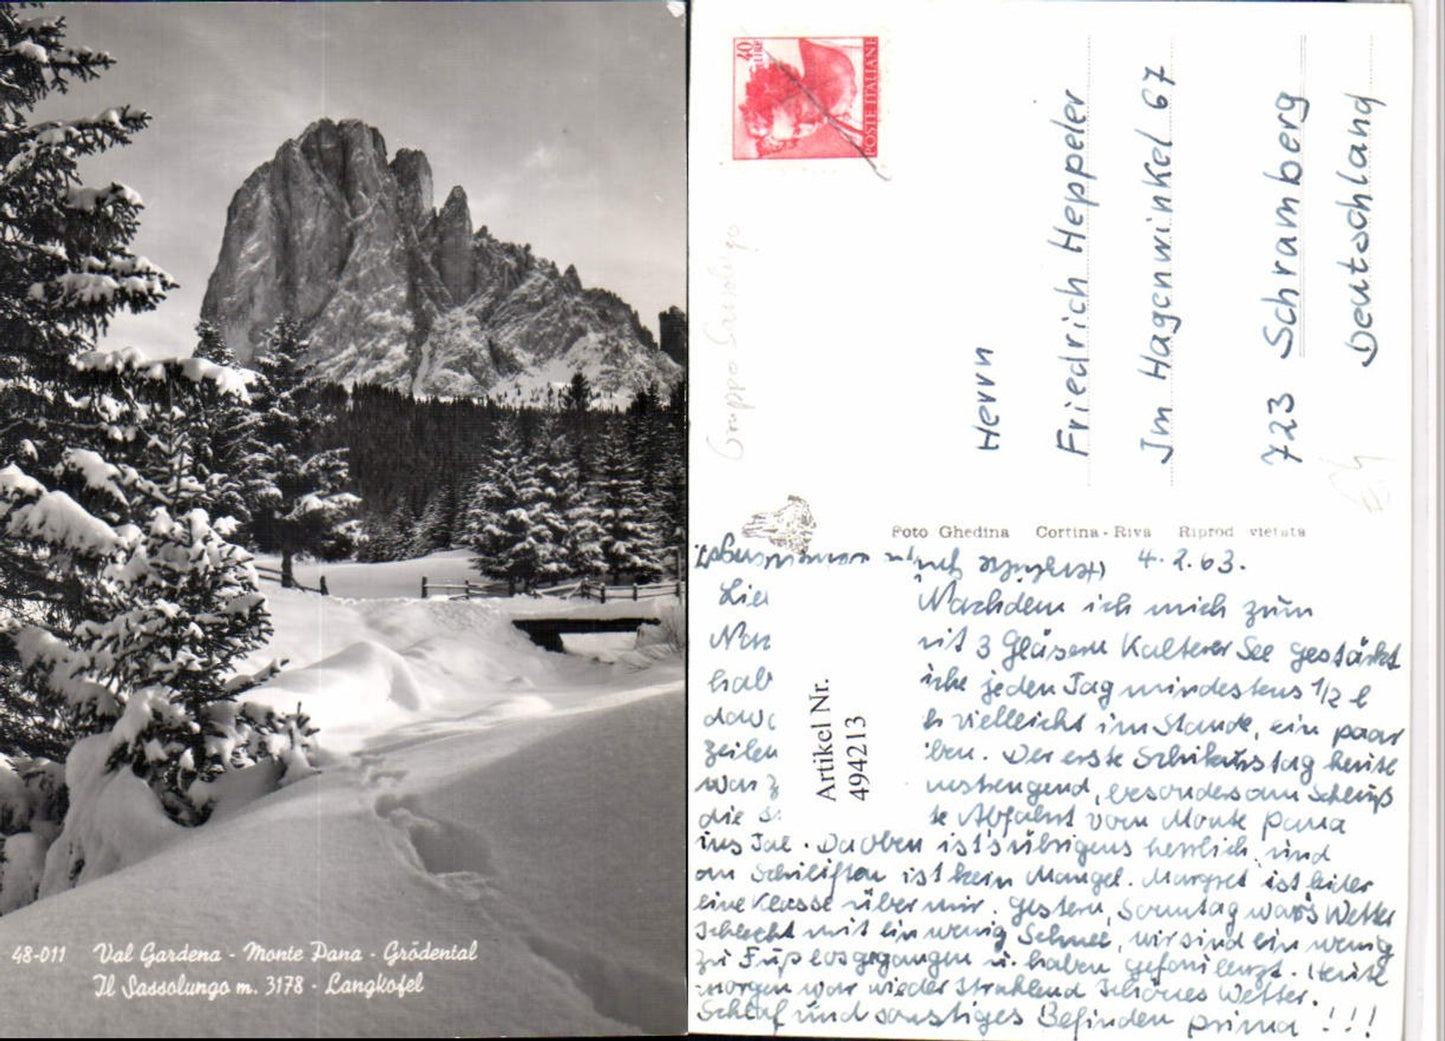 48-011 Val Gardena - Monte Pana - Grödental
Il Sassolungo m. 3178 - Langkofel
40 LIRE
POSTE ITALIANE
Gruppo Sassolungo
Herrn
Friedrich Heppeler
Im Hagenwinkel 67
723 Schramberg
Deutschland
Foto Ghedina Cortina - Riva Riprod vietata
4. 2. 63.
Nachdem ich mich zum
it 3 Gläsern Kalterer See gestärkt
hab jeden Tag mindestens 1/2 l
vielleicht im Stande, ein paar
Zeilen ben. Der erste Schikurstag heute
war anstrengend, besonders am Schluß
die Abfahrt vom Monte Pana
ins Tal. Da oben ist's übrigens herrlich und
an Schiliften ist kein Mangel. Margret ist leider
eine Klasse über mir. Gestern, Sonntag war's Wetter
schlecht mit ein wenig Schnee, wir sind ein wenig
zu Fuß losgegangen u. haben gefaulenzt. Heute
morgen war wieder strahlend schönes Wetter.
Schlaf und sonstiges Befinden prima !!!
Artikel Nr.
494213